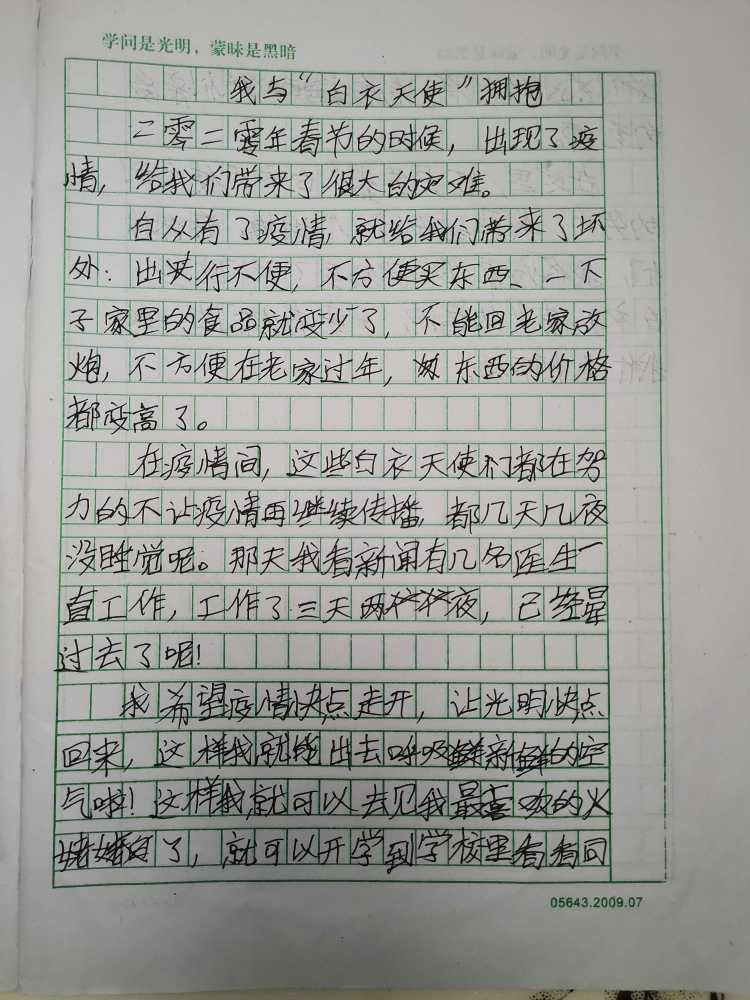 学问是光明，蒙昧是黑暗
我与“白衣天使”拥抱
二零二零年春节的时候，出现了疫
情，给我们带来了很大的灾难。
自从有了疫情，就给我们带来了坏
处：出行不便，不方便买东西、一下
子家里的食品就变少了，不能回老家放
炮，不方便在老家过年，东西的价格
都变高了。
在疫情间，这些白衣天使们都在努
力的不让疫情再继续传播，都几天几夜
没睡觉呢。那天我看新闻有几名医生一
直工作，工作了三天两夜，已经晕
过去了呢！
我希望疫情快点走开，让光明快点
回来，这样我就能出去呼吸新鲜的空
气啦！这样我就可以去见我最喜欢的火
了，就可以开学到学校里看看同
05643.2009.07